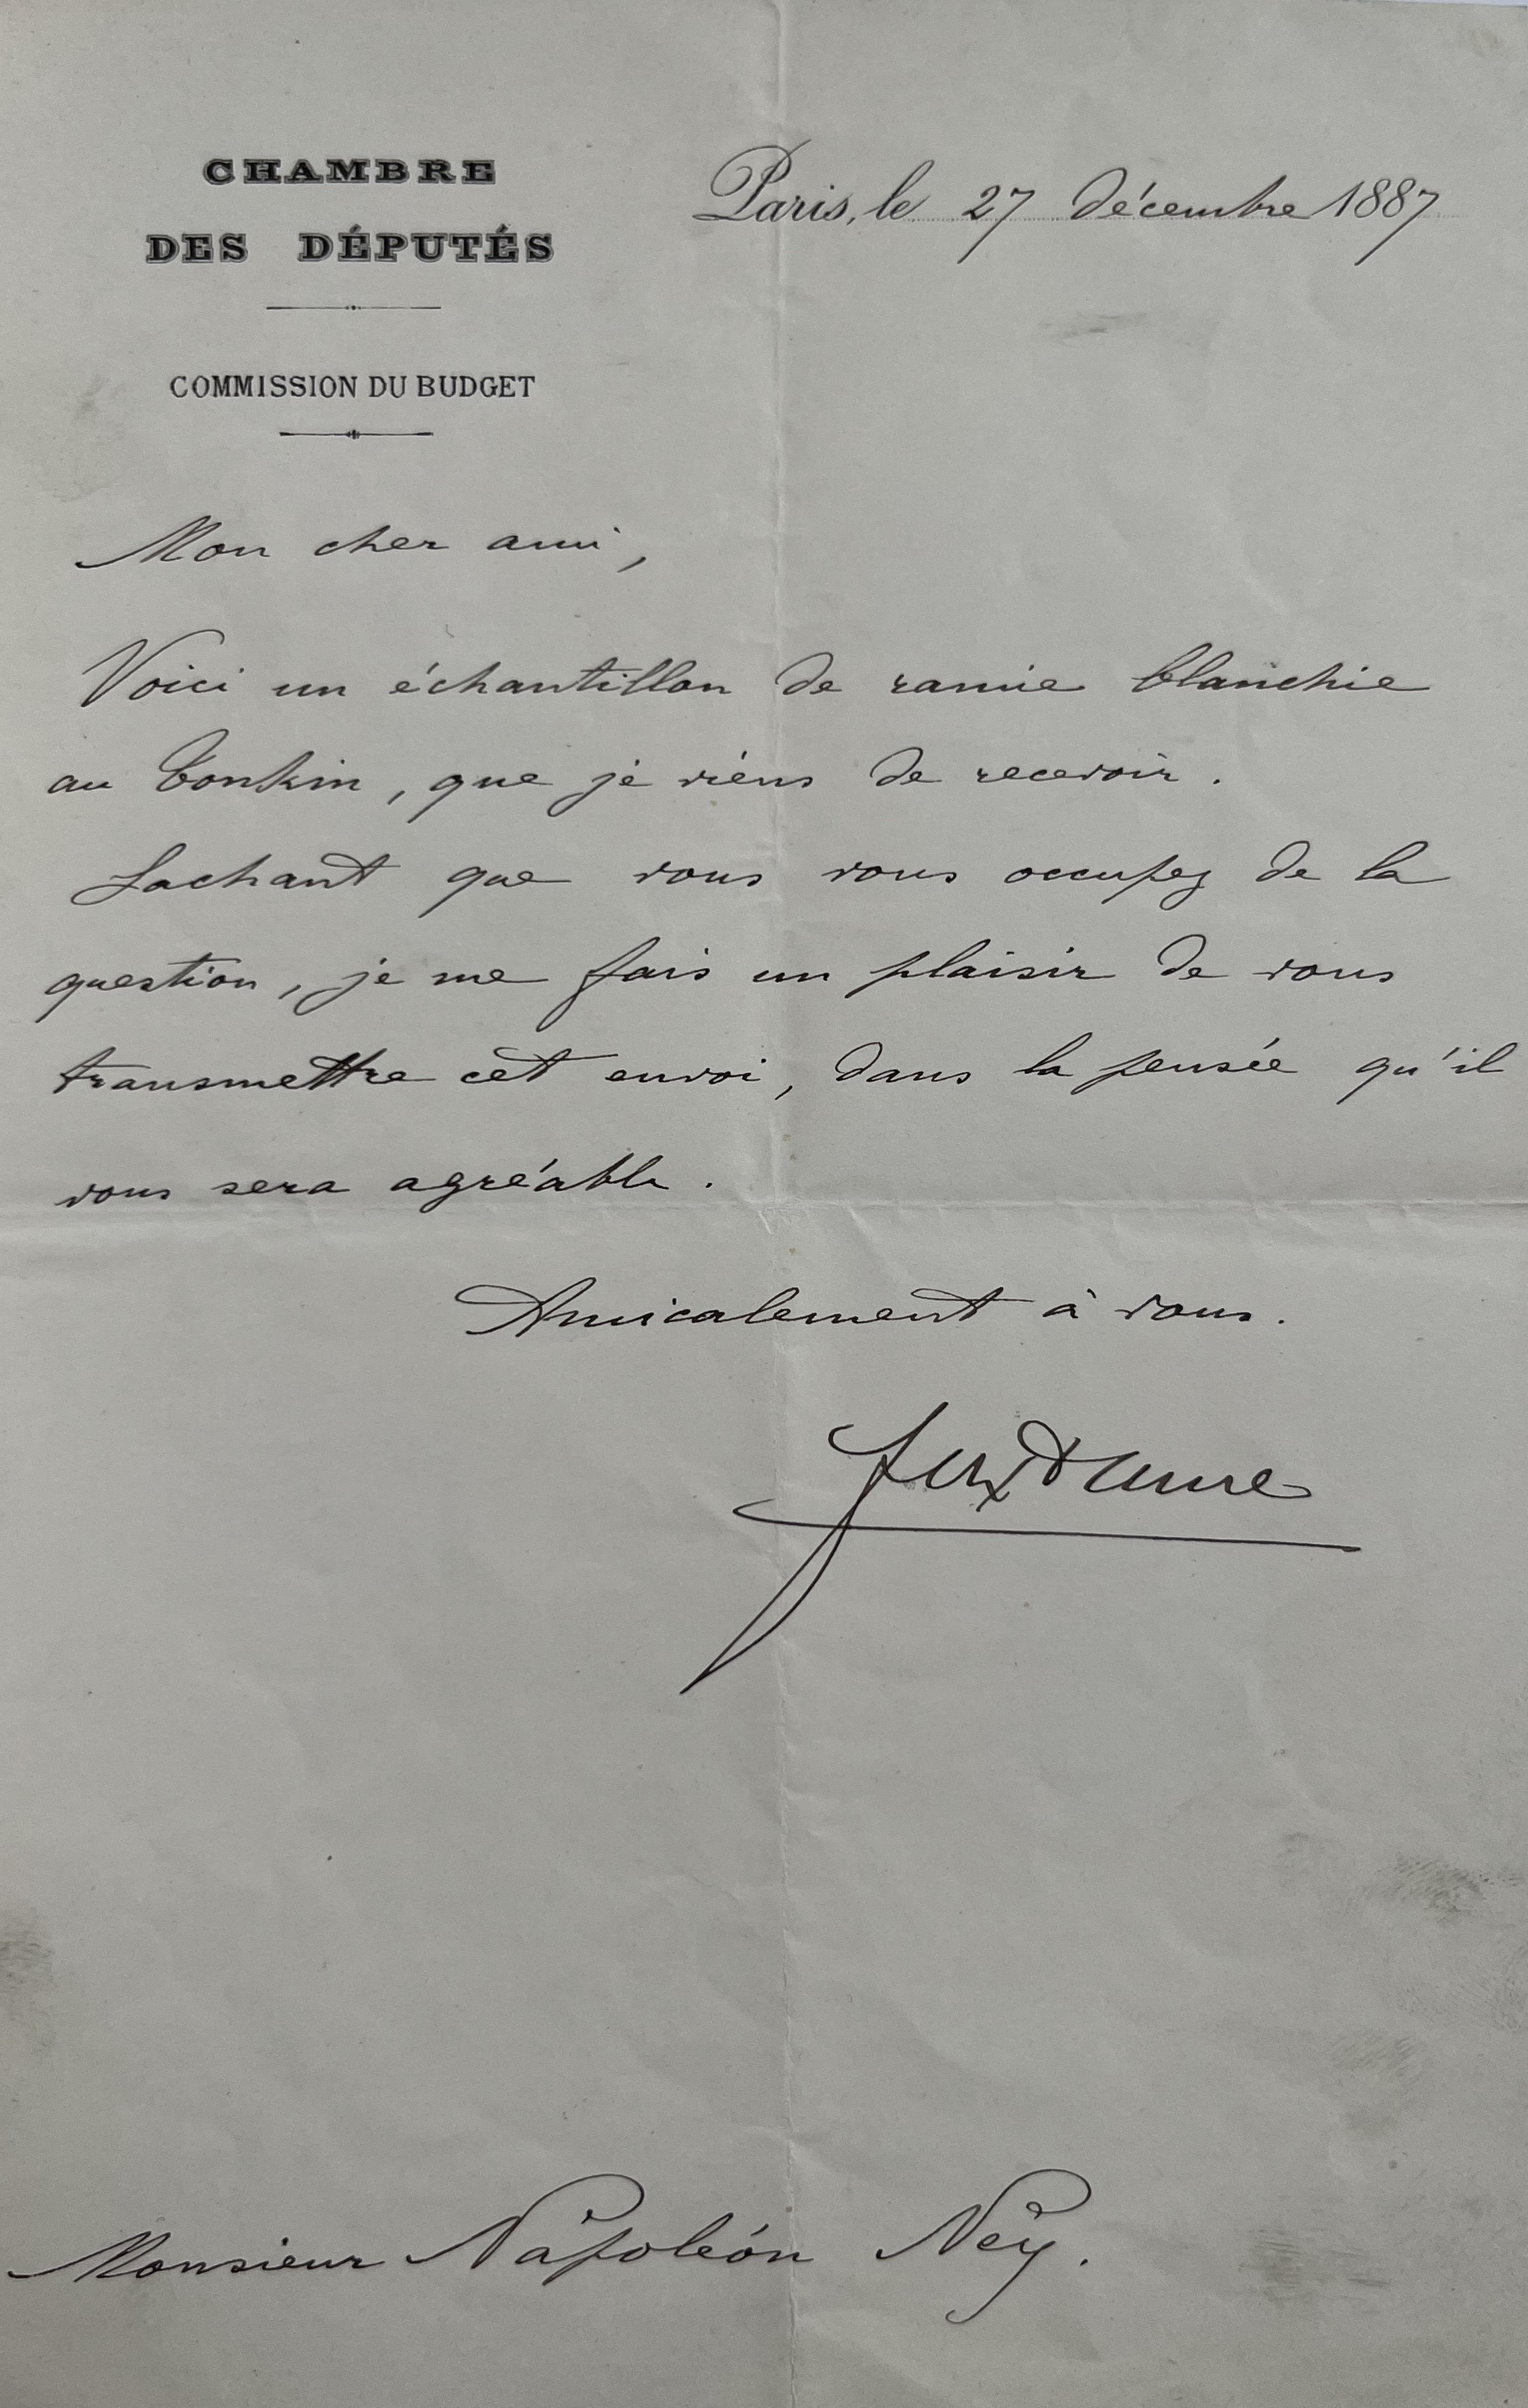 CHAMBRE
DES DÉPUTÉS
COMMISSION DU BUDGET
Paris, le 27 décembre 1887
Mon cher ami,
Voici un échantillon de ramie blanchie
au Tonkin, que je viens de recevoir.
Sachant que vous vous occupez de la
question, je me fais un plaisir de vous
transmettre cet envoi, dans la pensée qu'il
vous sera agréable.
Amicalement à vous.
Monsieur Napoléon Ney.